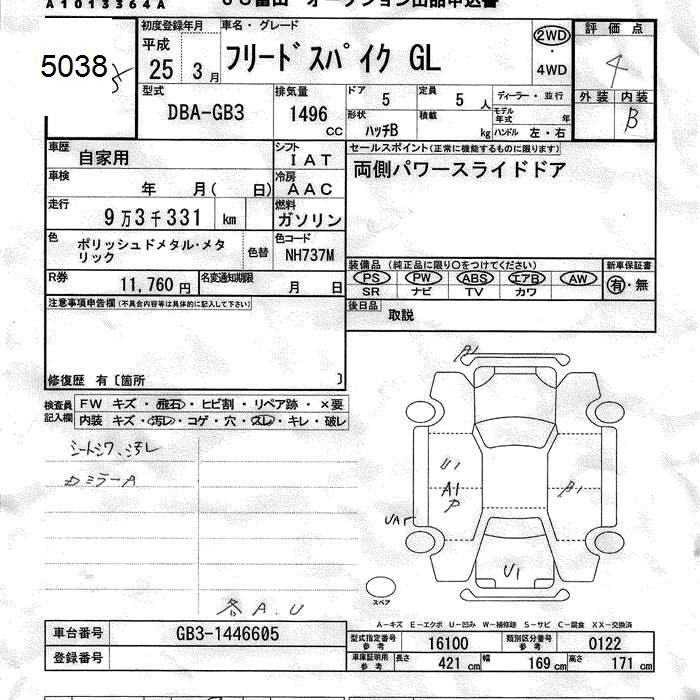 A1013364A
初度登録年月 車名・グレード 評価点
平成 25 3月 フリードスパイク GL 2WD・4WD 4
5038
型式 排気量 ドア 定員 ディーラー・並行 外装 内装
DBA-GB3 1496 cc 5 5人 B
形状 積載 モデル年式 年
ハッチB kg ハンドル 左・右
車歴 シフト セールスポイント(正常に機能するものに限ります)
自家用 IAT 両側パワースライドドア
車検 冷房
年 月( 日) AAC
走行 燃料
9万3千331 km ガソリン
色 色替 色コード
ポリッシュドメタル・メタリック NH737M
装備品(純正品に限り○をつけてください) 新車保証書
R券 名変通知期限 PS PW ABS エアB AW 有・無
11,760円 月 日 SR ナビ TV カワ
注意事項申告欄(不具合内容等は具体的に記入して下さい) 後日品
取説
修復歴 有〔箇所 〕
検査員記入欄 FW キズ・飛石・ヒビ割・リペア跡・×要
内装 キズ・汚レ・コゲ・穴・スレ・キレ・破レ
シートシワ、汚レ
ミラーA
A1
U1
A1
P
A1
UA
U1
スペア
各 A.U
A-キズ E-エクボ U-凹み W-補修跡 S-サビ C-腐食 XX-交換済
車台番号 GB3-1446605 型式指定番号 参考 16100 類別区分番号 参考 0122
登録番号 車庫証明用 参考 長さ 421cm 幅 169cm 高さ 171cm